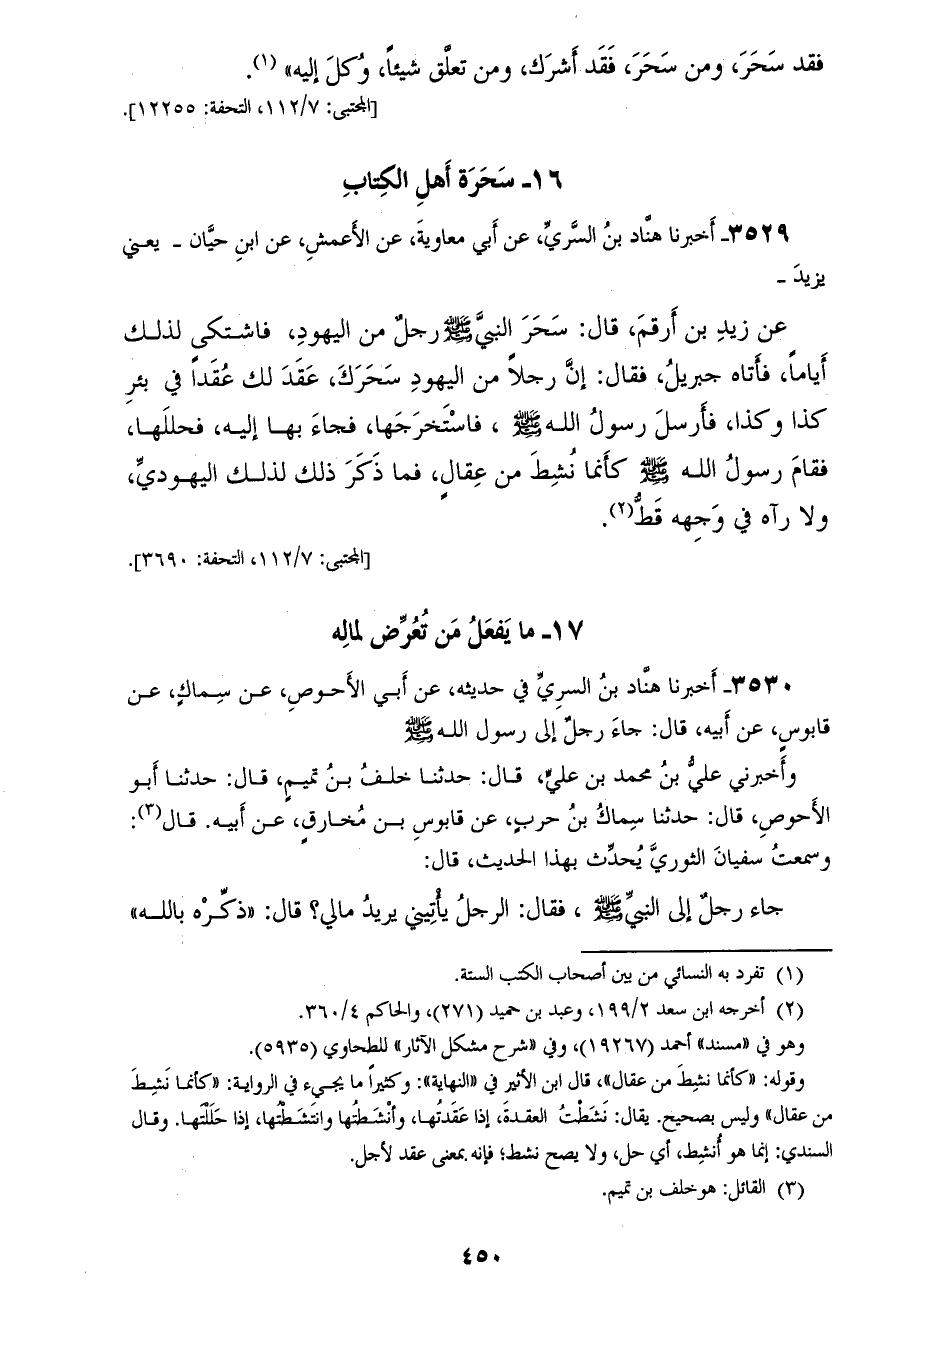 فقد سَحَرَ، ومن سَحَرَ، فَقَد أَشرَك، ومن تعلَّق شيئاً، وُكلَ إليه» (١).
[المجتبى: ١١٢/٧، التحفة: ١٢٢٥٥].
١٦ـ سَحَرَة أَهلِ الكِتابِ
٣٥٢٩ـ أَخبرنا هنَّاد بنُ السَّريِّ، عن أَبي معاويةَ، عن الأَعمشِ، عن ابنِ حيَّان ـ يعني
يزيدَ ـ
عن زيدِ بن أَرقمَ، قال: سَحَرَ النبيَّ ﷺ رجلٌ من اليهودِ، فاشتكى لذلك
أَياماً، فأَتاه جبريلُ، فقال: إنَّ رجلاً من اليهودِ سَحَرَكَ، عَقَدَ لك عُقَداً في بئرِ
كذا وكذا، فأَرسلَ رسولُ الله ﷺ ، فاسْتَخرَجَها، فجاءَ بها إليه، فحللَها،
فقامَ رسولُ الله ﷺ كأَنما نُشِطَ من عِقالٍ، فما ذَكَرَ ذلك لذلك اليهوديِّ،
ولا رآه في وَجهِه قَطُّ(٢).
[المجتبى: ١١٢/٧، التحفة: ٣٦٩٠].
١٧ـ ما يَفعَلُ مَن تُعُرِّض لمالِه
٣٥٣٠ـ أَخبرنا هنَّاد بنُ السريِّ في حديثه، عن أَبي الأَحوصِ، عن سِماكٍ، عن
قابوسٍ، عن أَبيه، قال: جاءَ رجلٌ إلى رسول الله ﷺ
وأَخبرني عليُّ بنُ محمد بن عليٍّ، قال: حدثنا خلفُ بنُ تميمٍ، قال: حدثنا أَبو
الأَحوصِ، قال: حدثنا سِماكُ بنُ حربٍ، عن قابوسِ بن مُخارقٍ، عن أَبيه. قال(٣):
وسمعتُ سفيانَ الثوريَّ يُحدِّث بهذا الحديث، قال:
جاء رجلٌ إلى النبيِّ ﷺ ، فقال: الرجلُ يأْتيني يريدُ مالي؟ قال: «ذكِّرْه بالله»
(١) تفرد به النسائي من بين أصحاب الكتب الستة.
(٢) أخرجه ابن سعد ١٩٩/٢، وعبد بن حميد (٢٧١)، والحاكم ٣٦٠/٤.
وهو في «مسند» أحمد (١٩٢٦٧)، وفي «شرح مشكل الآثار» للطحاوي (٥٩٣٥).
وقوله: «كأنما نشِطَ من عقال»، قال ابن الأثير في «النهاية»: وكثيراً ما يجيء في الرواية: «كأنما نَشِطَ
من عقال» وليس بصحيح. يقال: نَشَطْتُ العقدةَ، إذا عَقَدتُها، وأنْشَطتُها وانتَشَطتُها، إذا حَلَلْتَها. وقال
السندي: إنما هو أُنشِط، أي حل، ولا يصح نشط؛ فإنه بمعنى عقد لأجل.
(٣) القائل: هو خلف بن تميم.
٤٥٠